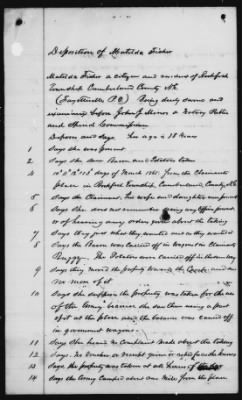 Deposition of Matilda Fisher
Matilda Fisher a citizen and resident of Rockfish
Township Cumberland County N.C.
(Fayetteville P.O.) Being duly sworn and
examined before John G. a Notary Public
and Special Commissioner
Deposes and says her age is 18 years
1 Says She was present
2 Says She saw Bacon and Potatoes taken
4 10th & 12th days of March 1865 from the Claimants
place in Rockfish Township, Cumberland County, N.C.
5 Says the Claimant, his wife and daughter were present
6 Says She does not remember seeing any officer present
or of hearing any orders given about the taking
7 Says they just what they wanted and as they wanted
8 Says the Bacon was Carried off in Wagons on Claimants
Buggy. The Potatoes were Carried off in the same way
9 Says they moved the property towards the Creek and
no more of it
10 Says She supposes the property was taken for the use
of the Army because she saw them using a part
of it at the place and the balance was carried off
in government wagons.
11 Says She heard no Complaint made about the taking
12 Says no voucher or receipt given or asked for she knows
13 Says the property was taken at all hours of the day
14 Says the Army Camped about one Mile from the place